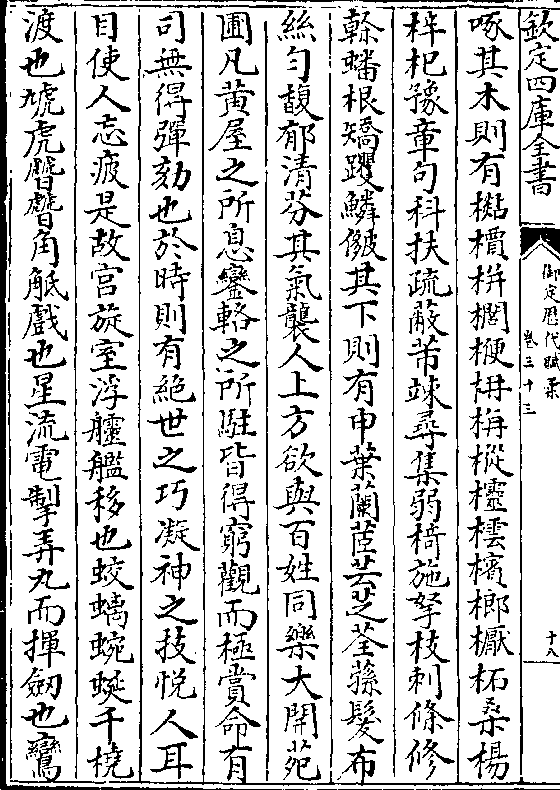 欽定四庫全書
御定歴代賦彙
卷三十三
十八
啄其木則有檟栟櫚楩枏栴樅櫨橒檳榔檿柘桑楊
梓杞豫章句科扶疏蔽芾竦尋集弱椅施拏枝刺條修
榦蟠根矯躩鱗皴其下則有申葉蘭茝芸芝荃蓀髮布
絲勻馥郁清芬其氣襲人上方欲與百姓同樂大開苑
圃凡黄屋之所息鑾輅之所駐皆得窮觀而極賞命有
司無得彈劾也於時則有絶世之巧凝神之技悦人耳
目使人忘疲是故宮旋室浮艫艦移也蛟螭蜿蜒千橈
渡也虓虎角觝戲也星流電掣弄丸而揮劒也鸞